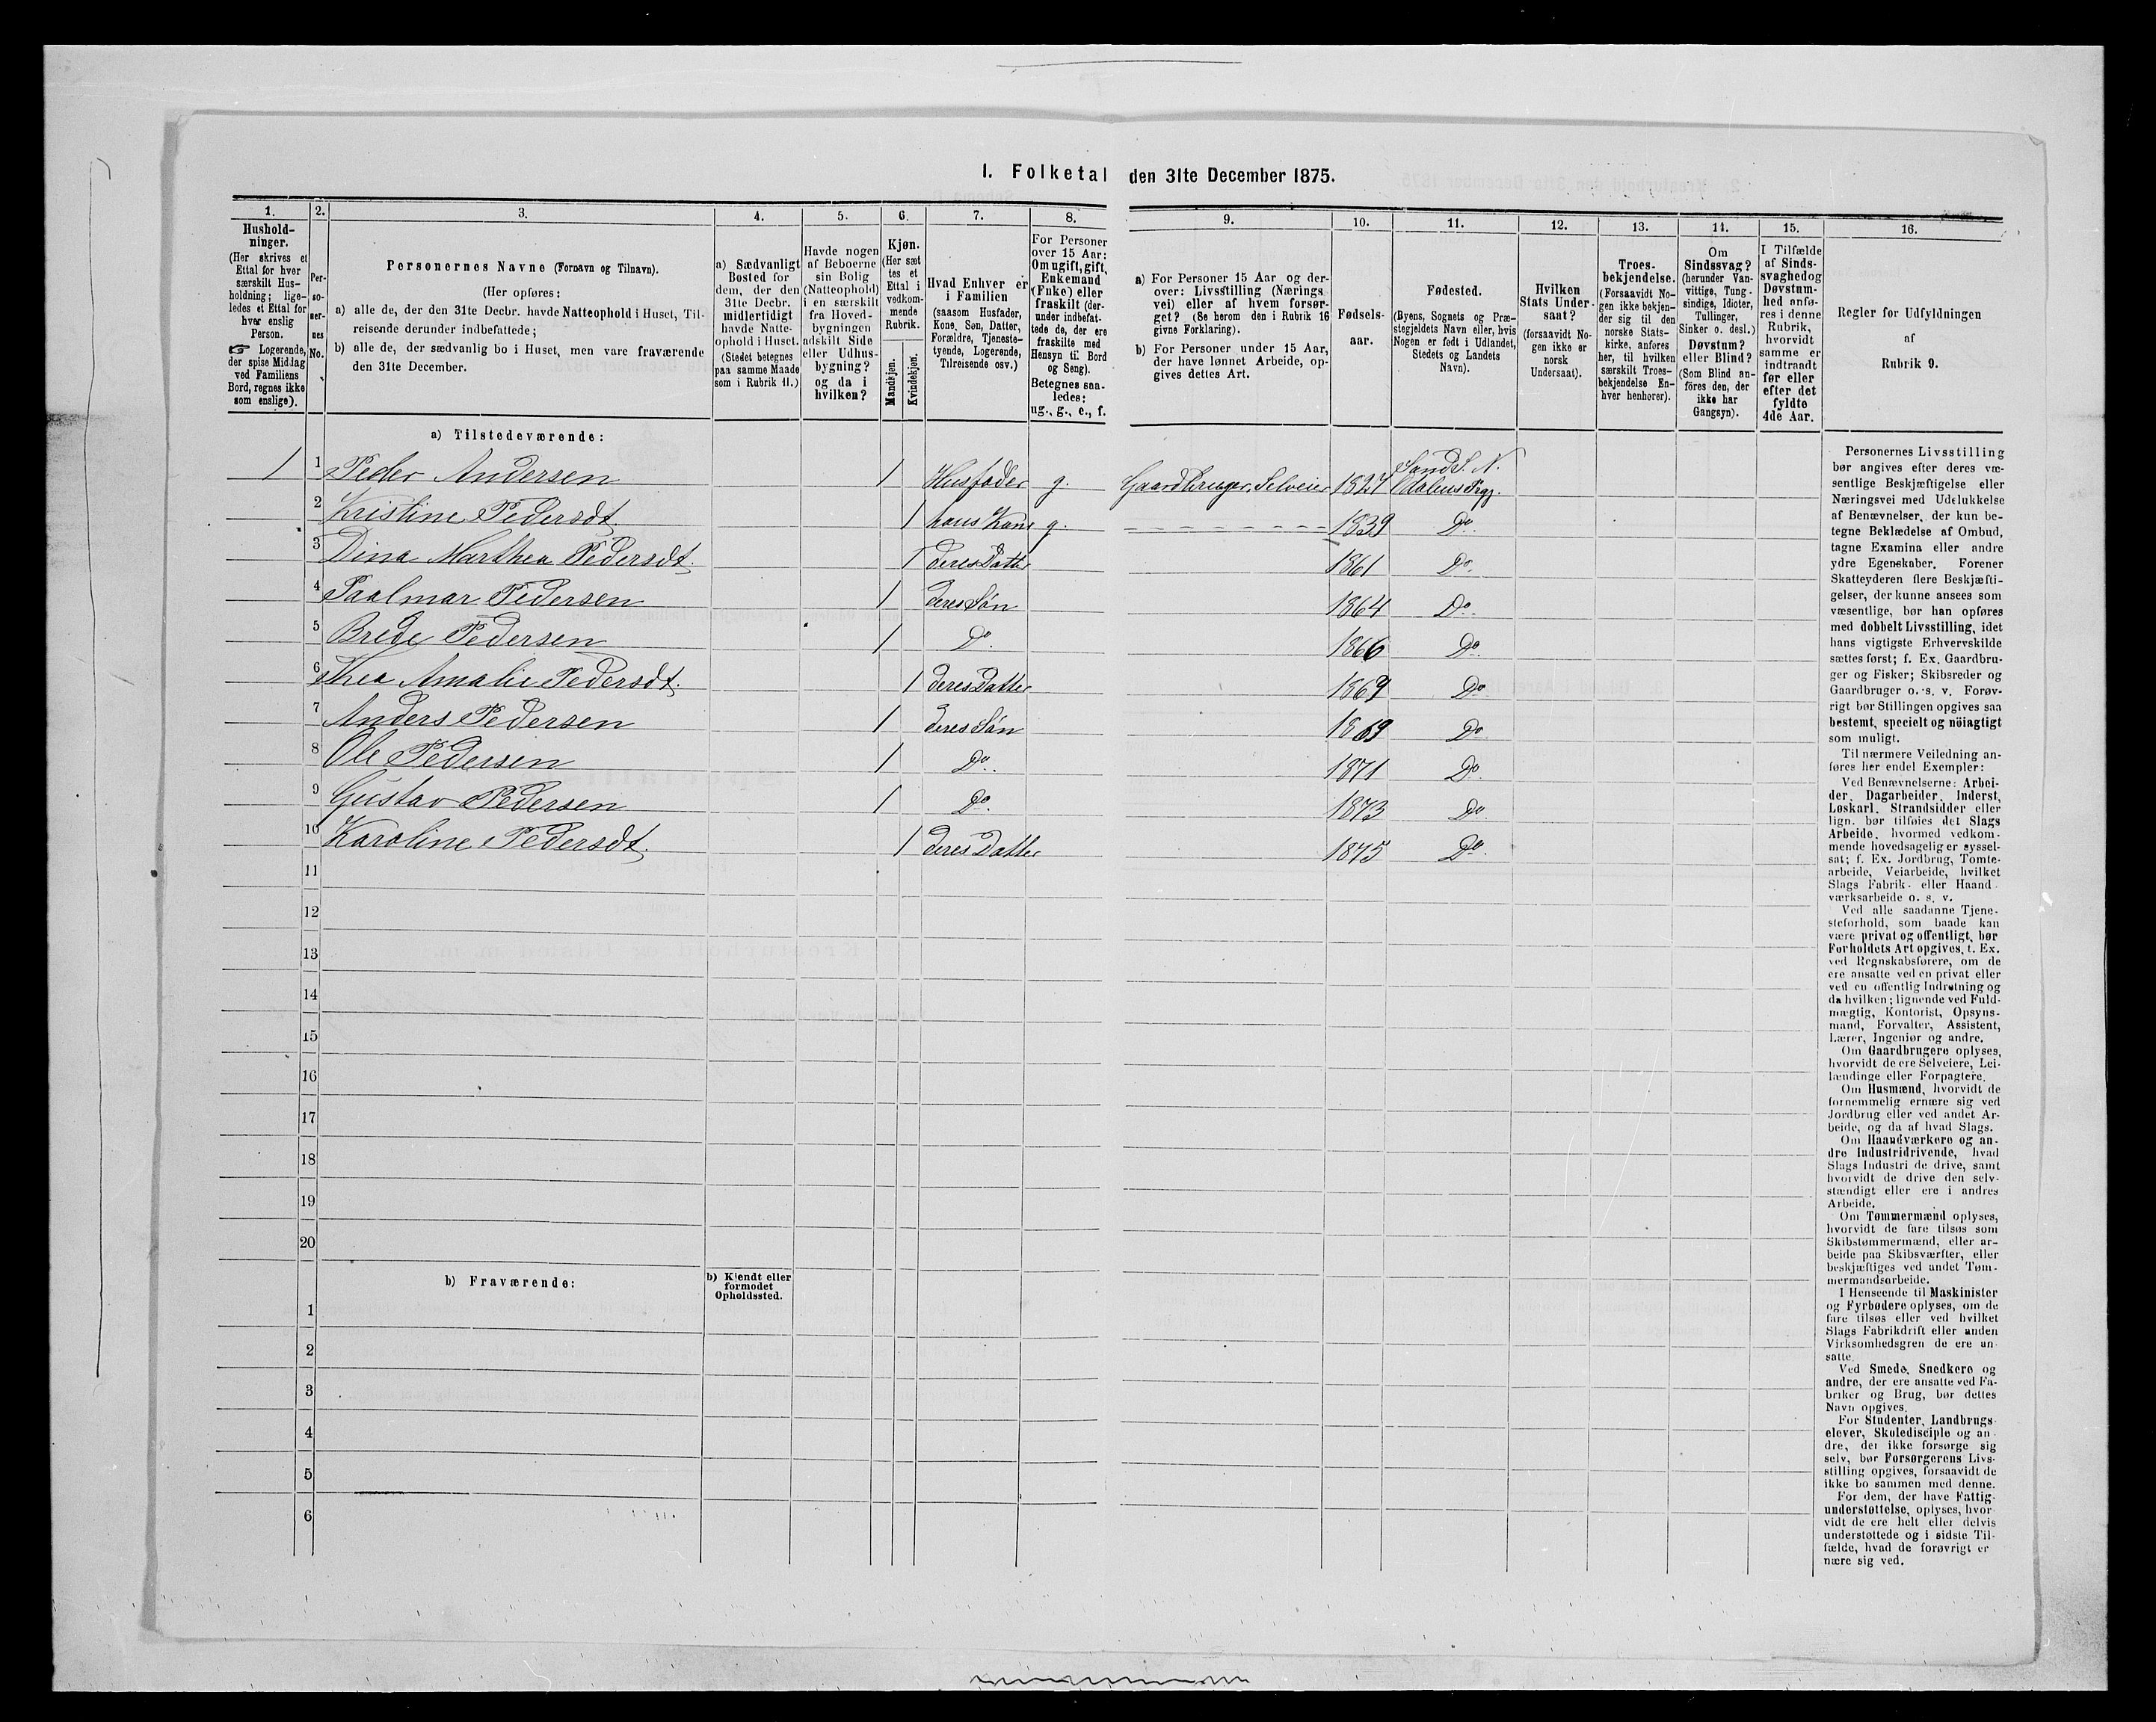 I. Folketal den 31te December 1875.
1. 2. 3. 4. 5. 6. 7. 8. 9. 10. 11. 12. 13. 14. 15. 16.
Hushold-
ninger.
(Her skrives et
Ettal for hver
særskilt Hus-
holdning; lige-
ledes et Ettal for
hver enslig
Person.
☞ Logerende,
der spise Middag
ved Familiens
Bord, regnes ikke
som enslige).
Per-
so-
ner-
nes
No.
Personernes Navne (Fornavn og Tilnavn).
(Her opføres:
a) alle de, der den 31te Decbr. havde Natteophold i Huset, Til-
reisende derunder indbefattede;
b) alle de, der sædvanlig bo i Huset, men vare fraværende
den 31te December.
a) Sædvanligt
Bosted for
dem, der den
31te Decbr.
midlertidigt
havde Natte-
ophold i Huset.
(Stedet betegnes
paa samme Maade
som i Rubrik 11.)
Havde nogen
af Beboerne
sin Bolig
(Natteophold)
i en særskilt
fra Hoved-
bygningen
adskilt Side
eller Udhus-
bygning?
og da i
hvilken?
Kjøn.
(Her sæt
tes et
Ettal i
vedkom-
mende
Rubrik.
Mandkjøn.
Kvindekjøn.
Hvad Enhver er
i Familien
(saasom Husfader,
Kone, Søn, Datter,
Forældre, Tjeneste-
tyende, Logerende,
Tilreisende osv.)
For Personer
over 15 Aar:
Om ugift, gift,
Enkemand
(Enke) eller
fraskilt (der-
under indbefat-
tede de, der ere
fraskilte med
Hensyn til Bord
og Seng).
Betegnes saa-
ledes:
ug., g., e., f.
a) For Personer 15 Aar og der-
over: Livsstilling (Nærings
vei) eller af hvem forsør-
get? (Se herom den i Rubrik 16
givne Forklaring).
b) For Personer under 15 Aar,
der have lønnet Arbeide, op-
gives dettes Art.
Fødsels-
aar.
Fødested.
(Byens, Sognets og Præ-
stegjeldets Navn eller, hvis
Nogen er født i Udlandet,
Stedets og Landets
Navn).
Hvilken
Stats Under-
saat?
(forsaavidt No-
gen ikke er
norsk
Undersaat).
Troes-
bekjendelse.
(Forsaavidt No-
gen ikke bekjen-
der sig til den
norske Stats-
kirke, anføres
her, til hvilken
særskilt Troes-
bekjendelse En-
hver henhører).
Om
Sindssvag?
(herunder Van-
vittige, Tung-
sindige, Idioter,
Tullinger,
Sinker o. desl.)
Døvstum?
eller Blind?
(Som Blind an-
föres den, der
ikke har
Gangsyn).
I Tilfælde
af Sinds-
svaghed og
Døvstum-
hed anfø-
res i denne
Rubrik,
hvorvidt
samme er
indtraadt
før eller
efter det
fyldte
4de Aar.
Regler for Udfyldningen
af
Rubrik 9.
a) Tilstedeværende:
1 1 Peder Andersen 1 Husfader g. Gaardbruger, Selveier 1827 Sand S. N. Odalens Prgj.
2 Kristine Pedersdt. 1 hans Kone g. 1839 Do.
3 Dina Marthea Pedersdt. 1 deres Datter 1861 Do.
4 Paalmar Pedersen 1 deres Sön 1864 Do.
5 Brede Pedersen 1 Do. 1866 Do.
6 Thea Amalie Pedersdt. 1 deres Datter 1869 Do.
7 Anders Pedersen 1 deres Sön 1869 Do.
8 Ole Pedersen 1 Do. 1871 Do.
9 Gustav Pedersen 1 Do. 1873 Do.
10 Karoline Pedersdt. 1 deres Datter 1875 Do.
11
12
13
14
15
16
17
18
19
20
b) Fraværende:
b) Kjendt eller
formodet
Opholdssted.
1
2
3
4
5
6
Personernes Livsstilling
bør angives efter deres væ-
sentlige Beskjæftigelse eller
Næringsvei med Udelukkelse
af Benævnelser, der kun be-
tegne Beklædelse af Ombud,
tagne Examina eller andre
ydre Egenskaber. Forener
Skatteyderen flere Beskjæfti-
gelser, der kunne ansees som
væsentlige, bør han opføres
med dobbelt Livsstilling, idet
hans vigtigste Erhvervskilde
sættes først; f. Ex. Gaardbru-
ger og Fisker; Skibsreder og
Gaardbruger o. s. v. Forøv-
rigt bør Stillingen opgives saa
bestemt, specielt og nöiagtigt
som muligt.
Til nærmere Veiledning an-
føres her endel Exempler:
Ved Benævnelserne: Arbei-
der, Dagarbeider, Inderst,
Løskarl, Strandsidder eller
lign. bør tilføies det Slags
Arbeide, hvormed vedkom-
mende hovedsagelig er syssel-
sat; f. Ex. Jordbrug, Tomte-
arbeide, Veiarbeide, hvilket
Slags Fabrik- eller Haand-
værksarbeide o. s. v.
Ved alle saadanne Tjene-
steforhold, som baade kan
være privat og offentligt, bør
Forholdets Art opgives, f. Ex.
ved Regnskabsførere, om de
ere ansatte ved en privat eller
ved en offentlig Indretning og
da hvilken; lignende ved Fuld-
mægtig, Kontorist, Opsyns-
mand, Forvalter, Assistent,
Lærer, Ingeniør og andre.
Om Gaardbrugere oplyses,
hvorvidt de ere Selveiere, Lei-
lændinge eller Forpagtere.
Om Husmænd, hvorvidt de
fornemmelig ernære sig ved
Jordbrug eller ved andet Ar-
beide, og da af hvad Slags.
Om Haandværkere og an-
dre Industridrivende, hvad
Slags Industri de drive, samt
hvorvidt de drive den selv-
stændigt eller ere i andres
Arbeide.
Om Tømmermænd oplyses,
hvorvidt de fare tilsøs som
Skibstømmermænd, eller ar-
beide paa Skibsværfter, eller
beskjæftiges ved andet Tøm-
mermandsarbeide.
I Henseende til Maskinister
og Fyrbødere oplyses, om de
fare tilsøs eller ved hvilket
Slags Fabrikdrift eller anden
Virksomhedsgren de ere an-
satte.
Ved Smede, Snedkere og
andre, der ere ansatte ved Fa-
briker og Brug, bør dettes
Navn opgives.
For Studenter, Landbrugs-
elever, Skoledisciple og an-
dre, der ikke forsørge sig
selv, bør Forsørgerens Livs-
stilling opgives, forsaavidt de
ikke bo sammen med denne.
For dem, der have Fattig-
understøttelse, oplyses, hvor-
vidt de ere helt eller delvis
understøttede og i sidste Til-
fælde, hvad de forøvrigt er
nære sig ved.